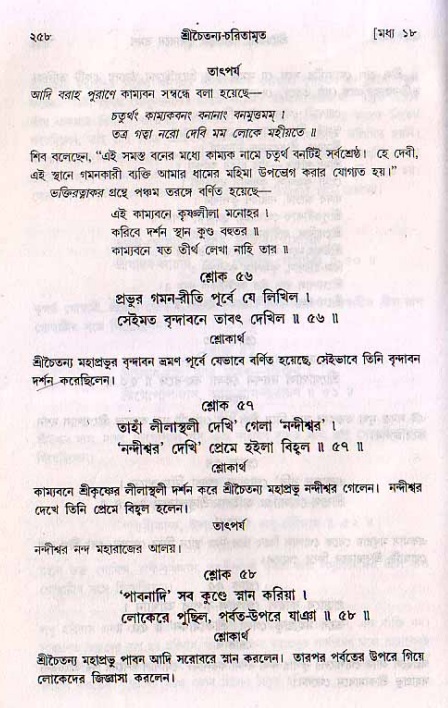 ২৫৮ শ্রীচৈতন্য-চরিতামৃত [মধ্য ১৮
তাৎপর্য
আদি বরাহ পুরাণে কাম্যবন সম্বন্ধে বলা হয়েছে—
চতুর্থং কাম্যকবনং বনানাং বনমুত্তমম্ ।
তত্র গত্বা নরো দেবি মম লোকে মহীয়তে ॥
শিব বলেছেন, “এই সমস্ত বনের মধ্যে কাম্যক নামে চতুর্থ বনটিই সর্বশ্রেষ্ঠ। হে দেবী,
এই স্থানে গমনকারী ব্যক্তি আমার ধামের মহিমা উপভোগ করার যোগ্যত হয়।”
ভক্তিরত্নাকর গ্রন্থে পঞ্চম তরঙ্গে বর্ণিত হয়েছে—
এই কাম্যবনে কৃষ্ণলীলা মনোহর ।
করিবে দর্শন স্থান কুণ্ড বহুতর ॥
কাম্যবনে যত তীর্থ লেখা নাহি তার ॥
শ্লোক ৫৬
প্রভুর গমন-রীতি পূর্বে যে লিখিল ।
সেইমত বৃন্দাবনে তাবৎ দেখিল ॥ ৫৬ ॥
শ্লোকার্থ
শ্রীচৈতন্য মহাপ্রভুর বৃন্দাবন ভ্রমণ পূর্বে যেভাবে বর্ণিত হয়েছে, সেইভাবে তিনি বৃন্দাবন
দর্শন করেছিলেন।
শ্লোক ৫৭
তাহাঁ লীলাস্থলী দেখি’ গেলা ‘নন্দীশ্বর’ ।
‘নন্দীশ্বর’ দেখি’ প্রেমে হইলা বিহ্বল ॥ ৫৭ ॥
শ্লোকার্থ
কাম্যবনে শ্রীকৃষ্ণের লীলাস্থলী দর্শন করে শ্রীচৈতন্য মহাপ্রভু নন্দীশ্বর গেলেন। নন্দীশ্বর
দেখে তিনি প্রেমে বিহ্বল হলেন।
তাৎপর্য
নন্দীশ্বর নন্দ মহারাজের আলয়।
শ্লোক ৫৮
‘পাবনাদি’ সব কুণ্ডে স্নান করিয়া ।
লোকেরে পুছিল, পর্বত-উপরে যাঞা ॥ ৫৮ ॥
শ্লোকার্থ
শ্রীচৈতন্য মহাপ্রভু পাবন আদি সরোবরে স্নান করলেন। তারপর পর্বতের উপরে গিয়ে
লোকেদের জিজ্ঞাসা করলেন।